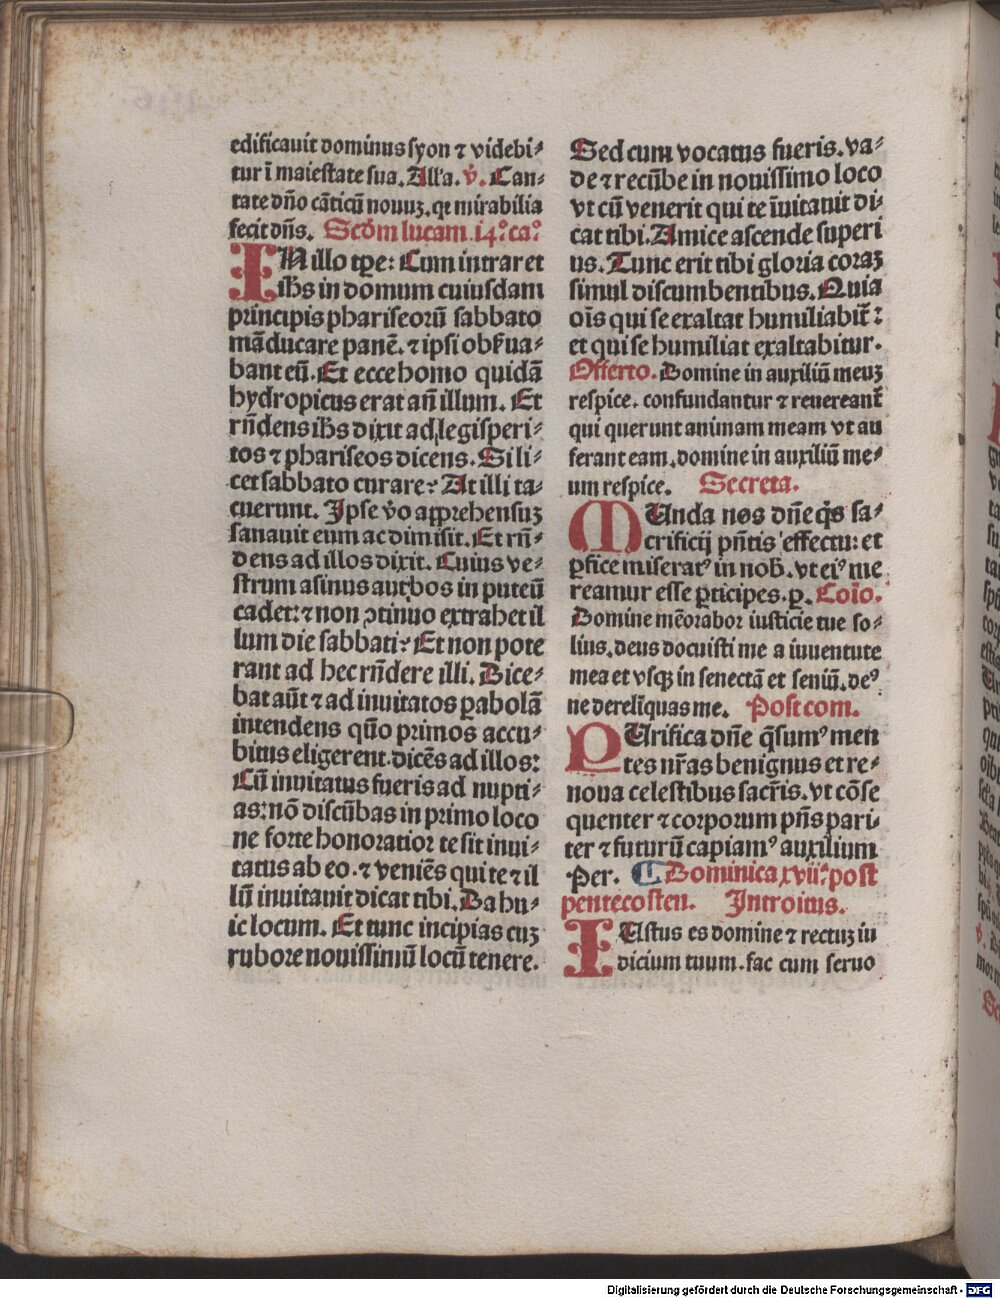 edificauit dominus syon ⁊ videbi⸗
tur ī maiestate sua. All'a. v̉. Can⸗
tate dño cãticũ nouuꝫ. qꝛ mirabilia
fecit dñs. Scḋm lucam. 14.° ca.°
IN illo tꝑe: Cum intraret
ihs̄ in domum cuiusdam
principis phariseorũ sabbato
mãducare panē. ⁊ ipsi obẜua⸗
bant eũ. Et ecce homo quidã
hydropicus erat añ illum. Et
rñdens ihs̄ dixit ad legisperi⸗
tos ⁊ phariseos dicens. Si li⸗
cet sabbato curare? At illi ta⸗
cuerunt. Ipse v̉o apprehensuꝫ
sanauit eum ac dimisit. Et rñ⸗
dens ad illos dixit. Cuius ve⸗
strum asinus aut bos in puteũ
cadet: ⁊ non ꝯtinuo extrahet il
lum die sabbati? Et non pote
rant ad hec rñdere illi. Dice⸗
bat aũt ⁊ ad inuitatos ꝑabolã
intendens quõ primos accu⸗
bitus eligerent. dicẽs ad illos:
Cũ inuitatus fueris ad nupti⸗
as: nõ discũbas in primo loco
ne forte honoratior te sit inui⸗
tatus ab eo. ⁊ veniẽs qui te ⁊ il
lũ inuitauit dicat tibi. Da hu⸗
ic locum. Et tunc incipias cuꝫ
rubore nouissimũ locũ tenere.
Sed cum vocatus fueris. va⸗
de ⁊ recũbe in nouissimo loco
vt cũ venerit qui te ĩuitauit di⸗
cat tibi. Amice ascende superi
us. Tunc erit tibi gloria coraꝫ
simul discumbentibus. Quia
oĩs qui se exaltat humiliabit̃:
et qui se humiliat exaltabitur.
Offerto. Domine in auxiliũ meuꝫ
respice. confundantur ⁊ reuereant̃
qui querunt animam meam vt au
ferant eam. domine in auxiliũ me⸗
um respice. Secreta.
MUnda nos dñe q̃s sa⸗
crificij pñtis effectu: et
ꝑfice miseratꝰ in nob̃. vt eiꝰ me
reamur esse ꝑticipes. ꝑ. Coĩo.
Domine mẽorabor iusticie tue so⸗
lius. deus docuisti me a iuuentute
mea et vsqꝫ in senectã et seniũ. deꝰ
ne derelĩquas me. Post com.
PUrifica dñe q̃sumꝰ men
tes nr̃as benignus et re⸗
noua celestibus sacr̃is. vt cõse
quenter ⁊ corporum pñs pari⸗
ter ⁊ futurũ capiamꝰ auxilium
Per. ¶ Dominica xvii.° post
pentecosten. Introitus.
IUstus es domine ⁊ rectuꝫ iu
dicium tuum. fac cum seruo
Digitalisierung gefördert durch die Deutsche Forschungsgemeinschaft - DFG